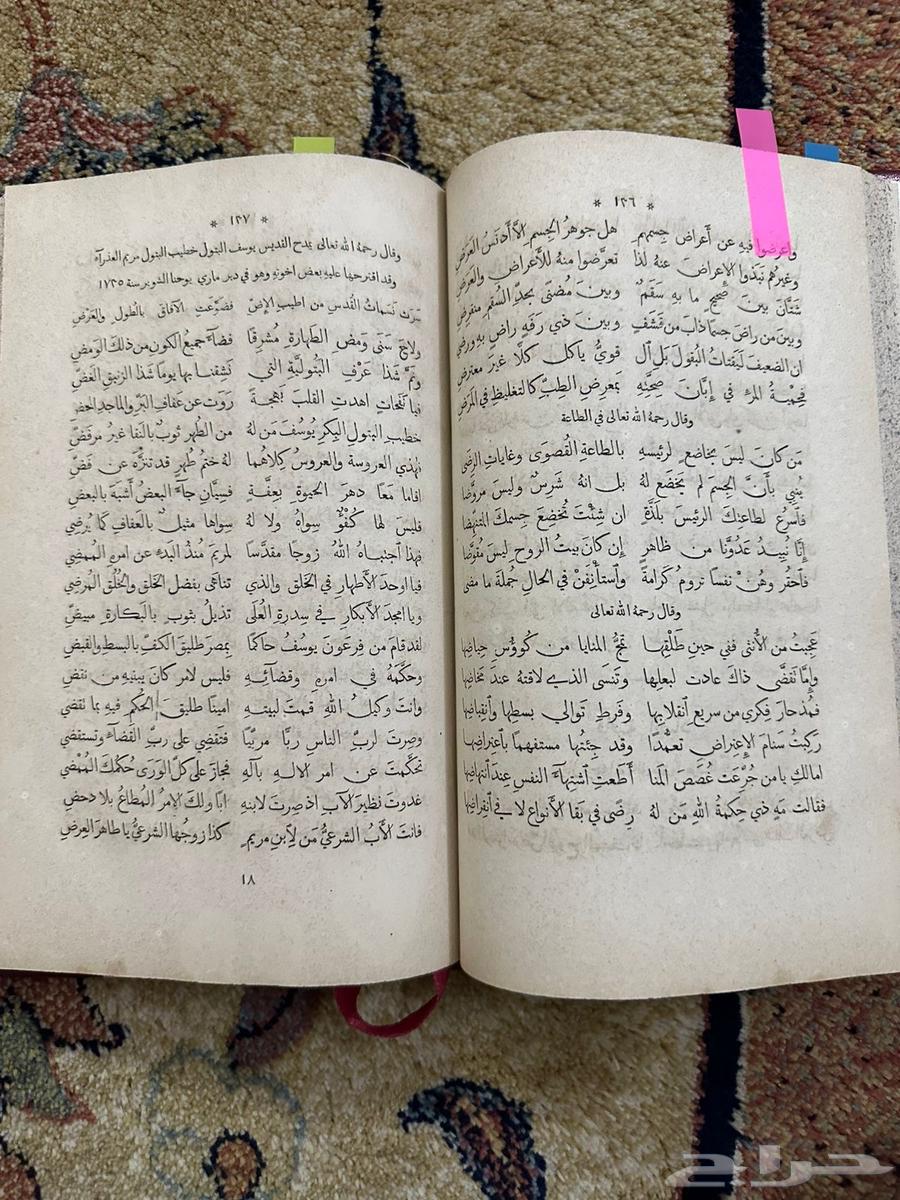 * ١٣٦ *
واعرضوا فيه عن أعراض جسمهمِ هل جوهرُ الجسمِ إلاَّ أَدنَسُ العَرَضِ
وغيرهُم نَبَذوا الإعراضَ عنهُ لذا تعرَّضوا منهُ للأعراضِ والعَرَضِ
شتَّانَ بينَ صحيحٍ ما بهِ سَقَمٌ وبينَ مُضنًى بحدِّ السُقمِ منقرضِ
وبينَ من راضَ جسمًا ذابَ من قَشَفٍ وبينَ ذي رَفَهٍ راضٍ بهِ ورضي
ان الضعيفَ ليَقتاتُ البُقولَ بَلِ ال قويُّ ياكل كلاًّ غيرَ معترضِ
فحِميةُ المرءِ في إبَّانِ صحَّتِهِ بمعرضِ الطِبِّ كالتغليظِ في المَرَضِ
وقال رحمهُ الله تعالى في الطاعة
مَن كانَ ليسَ بخاضعٍ لرئيسهِ بالطاعةِ القُصوَى وغاياتِ الرِضَى
يُنبِي بأنَّ الجسمَ لم يخضع لهُ بل انهُ شَرِسٌ وليسَ مروَّضا
فأَسرِعْ لطاعتكَ الرئيسَ بلذَّةٍ ان شئتَ تُخضِعَ جسمكَ المنتهِضا
إنَّا نُبِيدُ عَدُوَّنا من ظاهرٍ إن كانَ بيتُ الروحِ ليسَ مُقوَّضا
فأَحقُر وهُن نفسًا تروم كرامةً وأستأنِفَنْ في الحالِ جُملةَ ما مضى
وقال رحمهُ الله تعالى
عَجِبتُ من الأُنثى فني حينِ طَلْقِها تَمُجُّ المنايا من كُوُوْسِ حِياضِها
وإمَّا تَقَضَّى ذاكَ عادت لبعلِها وتَنسَى الذي لاقتهُ عندَ مَخاضِها
فمُذ حارَ فِكري من سريعِ أنقلابِها وفَرطِ تَوالي بسطِها وأنقِباضِها
رَكِبتُ سَنامَ الإعتِراضِ تعمُّدًا وقد جِئتُها مستفهمًا بأعتِراضِها
امالكِ يا من جُرِّعَت غُصَصَ المنا أَطَعتِ أشتِهآءَ النفسِ عندَ أنتِهاضِها
فقالت مَهٍ ذي حِكمةُ اللهِ مَن لهُ رِضًى في بقا الأنواعِ لا في أنقِراضِها
* ١٣٧ *
وقال رحمهُ الله تعالى يمدح القديس يوسف البتول خطيب البتول مريم العذرآء
وقد اقترحها عليهِ بعض اخوتهِ وهو في دير ماري يوحنا الشوير سنة ١٧٣٥
سَرَت نَسَماتُ القُدسِ من اطيبِ الارضِ فضَوَّعتِ الآفاقَ بالطُولِ والعَرضِ
ولاحَ سَنَى وَمضِ الطَهارةِ مُشرقًا فضآءَ جميعُ الكونِ من ذلكَ الوَمضِ
ونمَّ شَذا عَرْفِ البُتوليَّةِ التي نَشِقنا بها يومًا شَذا الزنبقِ الغضِّ
فيا نَفَحاتٍ اهدتِ القلبَ بَهجةً رَوَت عن عفافِ البَرِّ والماجدِ المحضِ
خطيبِ البتولِ البِكرِ يُوسُفَ مَن لهُ من الطُهرِ ثوبٌ بالبَها غيرُ مرفَضِّ
فهذي العروسةُ والعروسُ كِلاهُما لهُ ختمُ طُهرٍ قد تنزَّهَ عن فَضِّ
اقاما مَعًا دهرَ الحيوةِ بعِفَّةٍ فسِيَّانِ جآءَ البعضُ أَشبَهَ بالبعضِ
فليسَ لها كُفْوٌ سِواهُ ولا لهُ سِواها مثيلٌ بالعَفافِ كما يُرضِي
فهذا أجتباهُ اللهُ زوجًا مقدَّسًا لمريمَ مُنذُ البَدءِ عن امرهِ المُمضِي
فيا اوحدَ الأَطهارِ في الخَلقِ والذي تناهَى بفضل الخَلقِ والخُلُقِ المُرضِي
ويا امجدَ الأَبكارِ في سِدرةِ العُلَى تذيلُ بثوبٍ بالبَكارةِ مبيضِّ
لقد قامَ من فِرعَونَ يوسُفُ حاكمًا بمِصرَ طليقَ الكفِّ بالبسطِ والقبضِ
وحكَّمَهُ في امرهِ وقضائِهِ فليس لامرٍ كانَ يبنيهِ من نقضِ
وانتَ وكيلُ اللهِ قمتَ لبيتهِ امينًا طليقَ الحكمِ فيهِ بما تقضي
وصِرتَ لربِّ الناسِ ربًّا مربِّيًا فتقضِي على ربِّ القضآءِ وتستقضي
تحكَّمتَ عن امرِ الالهِ بآلهِ فجازَ على كلِّ الوَرَى حُكمُكَ المُمْضي
غدوتَ نظيرَ الآبِ اذ صِرتَ لابنهِ ابًا ولكَ الامرُ المُطاعُ بلا دحضِ
فانتَ الأَبُ الشرعيُّ مَن لِأبنِ مريمٍ كذا زوجُها الشرعيُّ يا طاهرَ العِرضِ
١٨
حراج